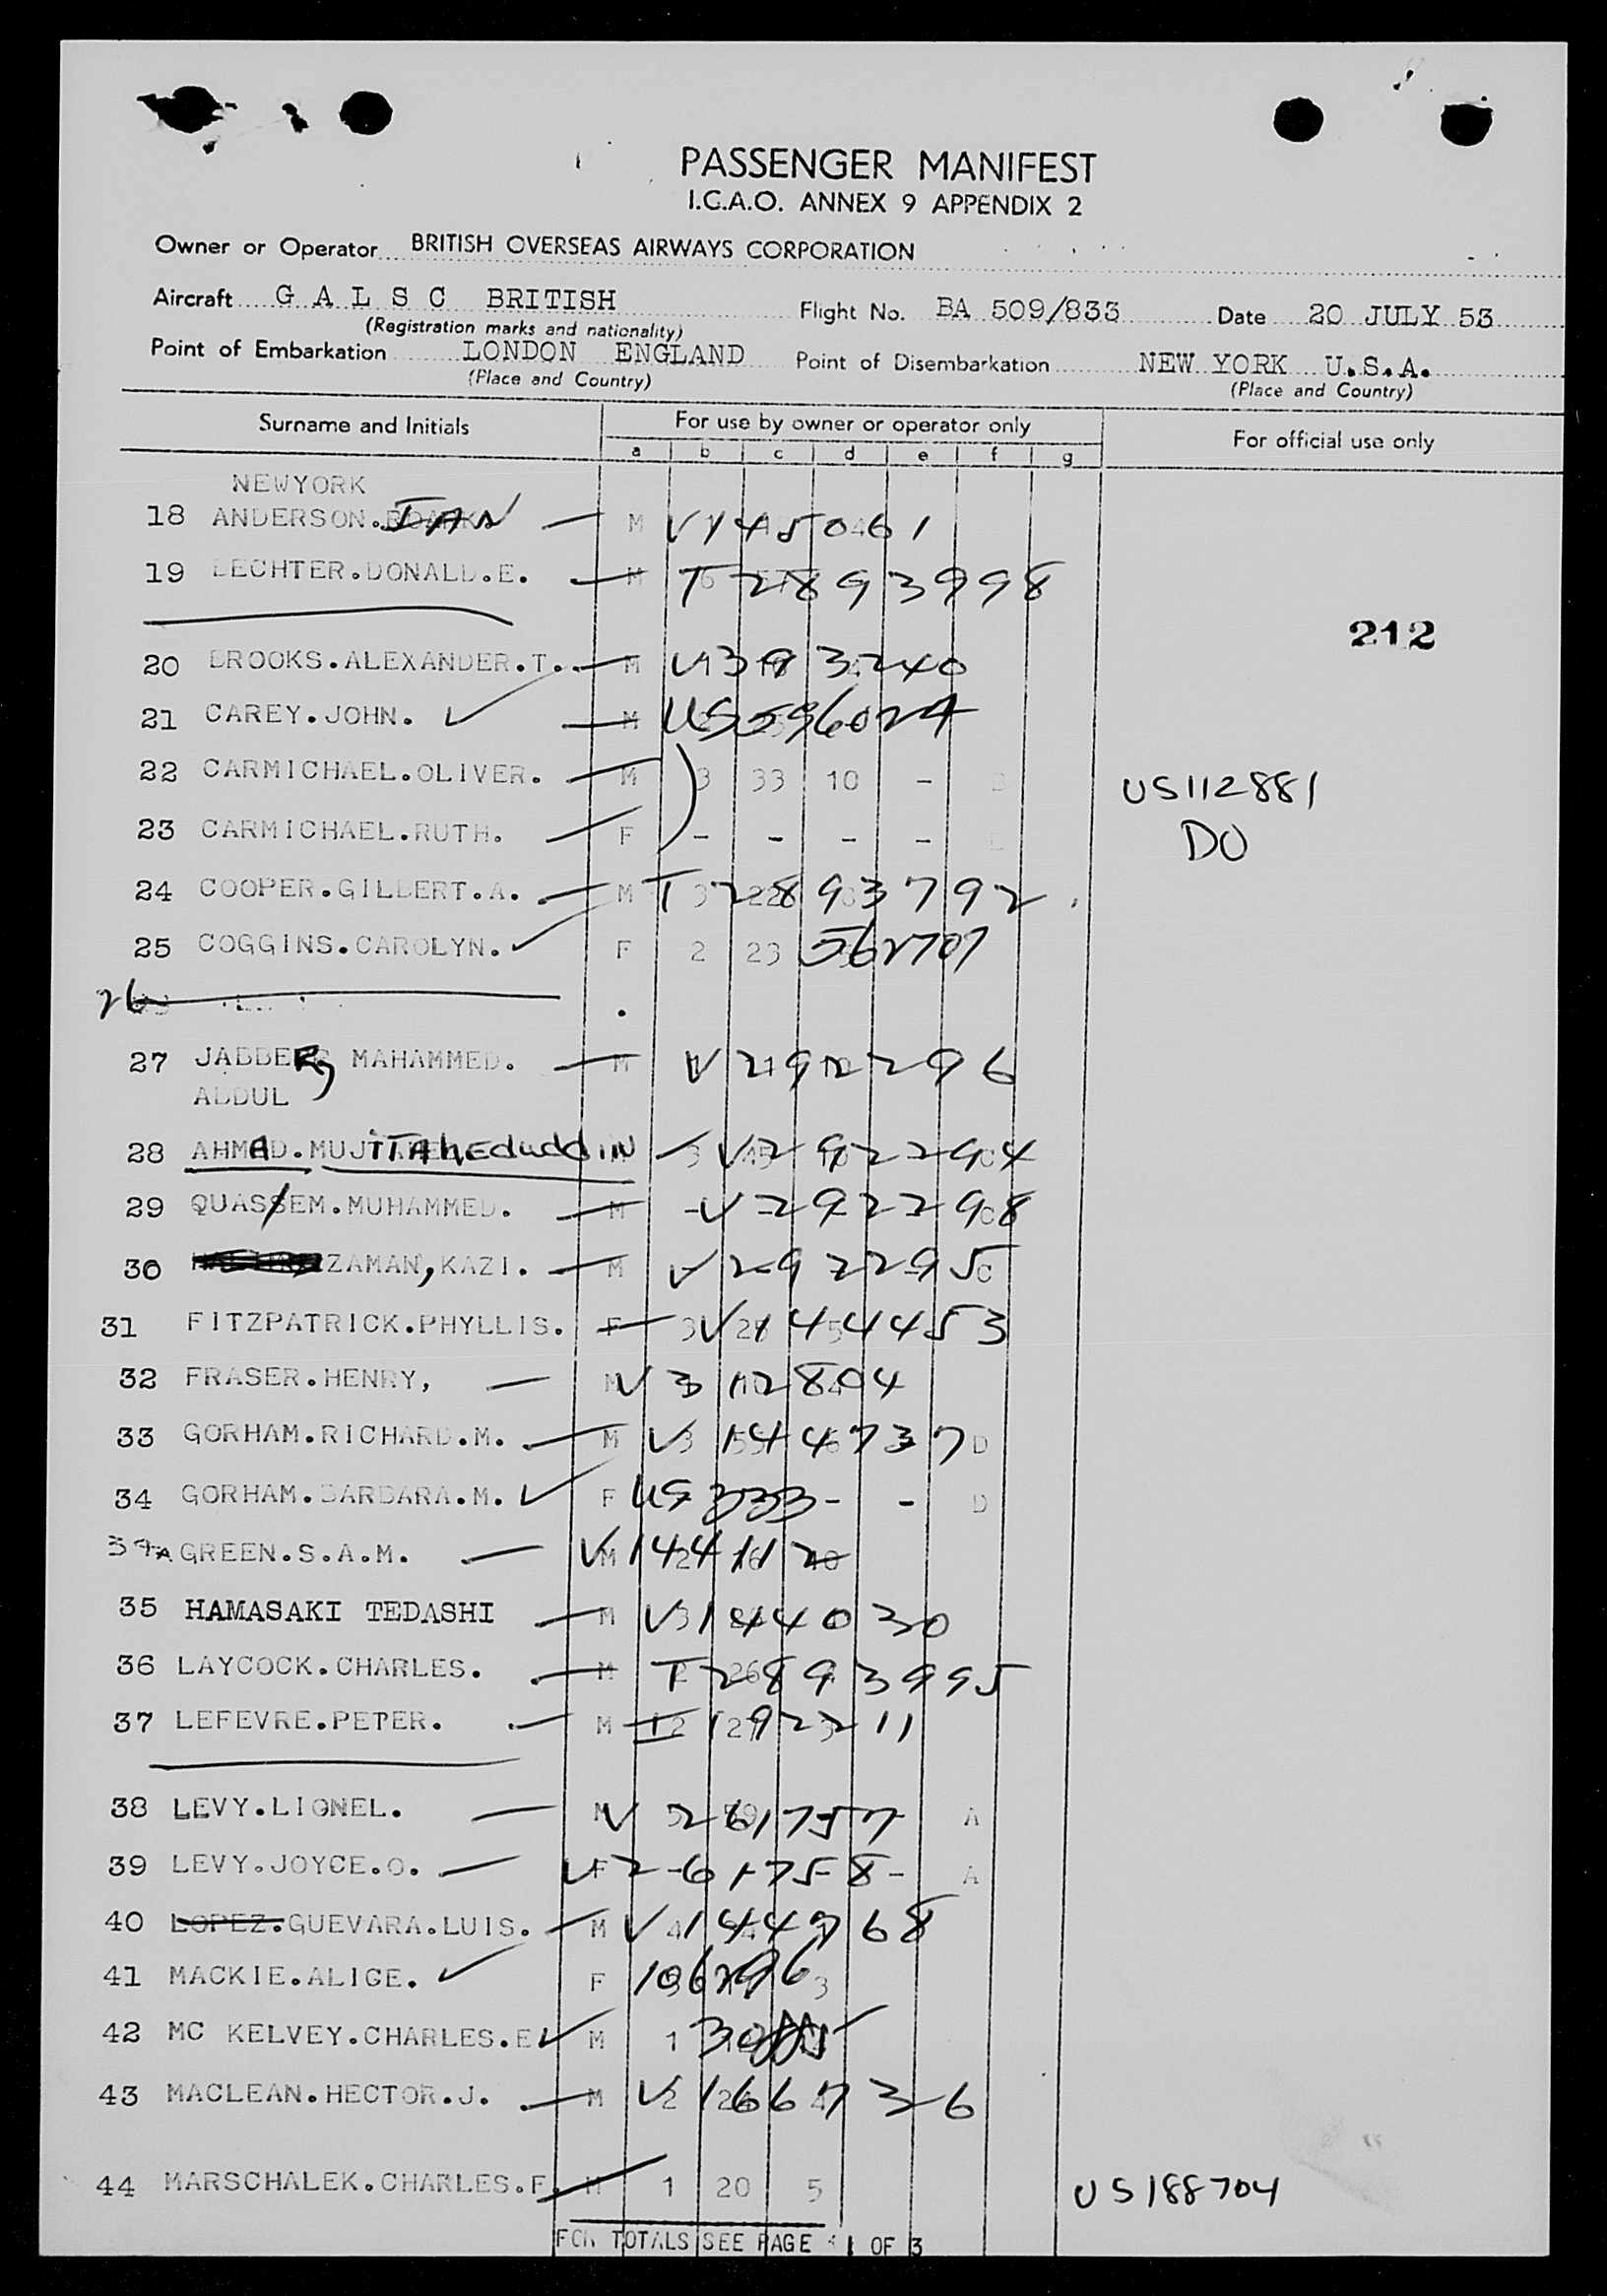 PASSENGER MANIFEST
I.C.A.O. ANNEX 9 APPENDIX 2
Owner or Operator BRITISH OVERSEAS AIRWAYS CORPORATION
Aircraft G A L S C BRITISH Flight No. BA 509/833 Date 20 JULY 53
(Registration marks and nationality)
Point of Embarkation LONDON ENGLAND Point of Disembarkation NEW YORK U.S.A.
(Place and Country) (Place and Country)
Surname and Initials For use by owner or operator only For official use only
a b c d e f g
NEWYORK
18 ANDERSON. IAN M V1450461
19 LECHTER.DONALD.E. M T2893998
212
20 BROOKS.ALEXANDER.T. M V1393240
21 CAREY.JOHN. M US596024
22 CARMICHAEL.OLIVER. M 3 33 10 - US112881
23 CARMICHAEL.RUTH. F - - - - DO
24 COOPER.GILBERT.A. M T2893792
25 COGGINS.CAROLYN. F 2 23 562707
26
27 JABBER, MAHAMMED. M V2922296
ABDUL
28 AHMAD.MUJTAheduddIN V2922294
29 QUASSEM.MUHAMMED. M V292298
30 ZAMAN, KAZI. M V292295 C
31 FITZPATRICK.PHYLLIS. F V1444453
32 FRASER.HENRY, M V312804
33 GORHAM.RICHARD.M. M V1444737 D
34 GORHAM.BARBARA.M. F US 333 - - D
34A GREEN.S.A.M. M V1441120
35 HAMASAKI TEDASHI M V1444030
36 LAYCOCK.CHARLES. M T2893995
37 LEFEVRE.PETER. M I192211
38 LEVY.LIONEL. M V261757 A
39 LEVY.JOYCE.O. F V261758 - A
40 LOPEZ.GUEVARA.LUIS. M V1444768
41 MACKIE.ALICE. F 106296 3
42 MC KELVEY.CHARLES.E M 1
43 MACLEAN.HECTOR.J. M V1667736
44 MARSCHALEK.CHARLES.F. M 1 20 5 US188704
FOR TOTALS SEE PAGE 1 OF 3